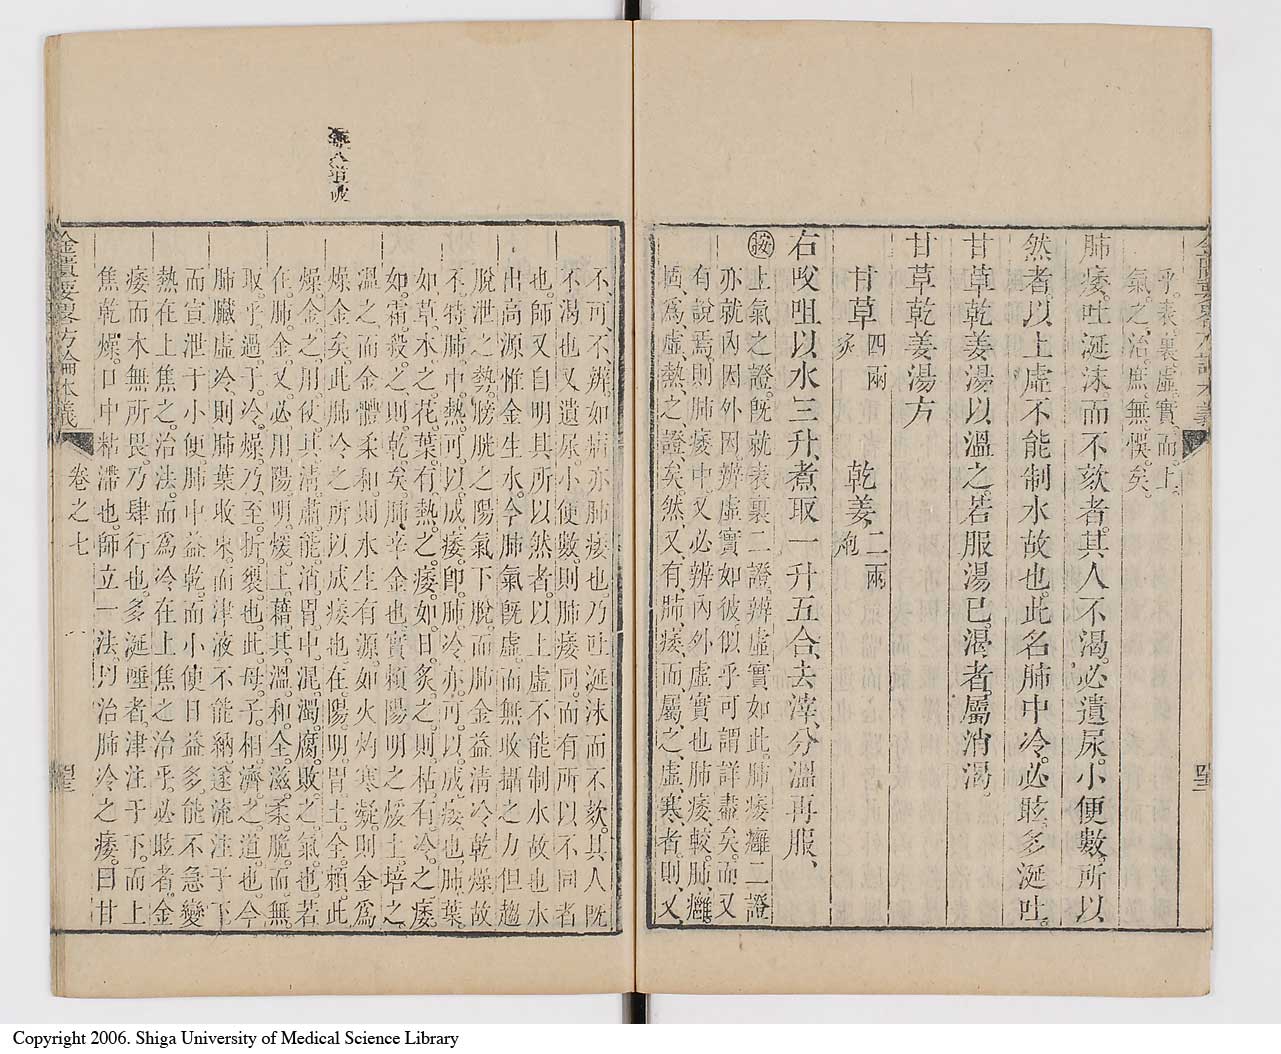 乎。表裏虛實。而上。
氣之治。庶無悞矣。
肺痿。吐涎沫。而不欬者。其人不渴。必遺尿。小便數。所以
然者。以上虛不能制水故也。此名肺中冷。必眩。多涎吐。
甘草乾姜湯以溫之。若服湯已。渴者。屬消渴。
甘草乾姜湯方
甘草 四兩 炙 乾姜 二兩 炮
右㕮咀。以水三升、煮取一升五合、去滓、分溫再服、
按上氣之證。旣就表裏二證。辨虛實如此。肺痿癰二證
亦就內因外因。辨虛實如彼。似乎可謂詳盡矣。而又
有說焉。則肺痿中。又必辨內外虛實也。肺痿。較肺癰。
固爲虛熱之證矣。然又有肺痿。而屬之虛寒者。則又
不可不辨。如病亦肺痿也。乃吐涎沫而不欬。其人旣
不渴也。又遺尿。小便數。則肺痿同。而有所以不同者
也。師又自明其所以然者。以上虛不能制水故也。水
出高源。惟金生水。今肺氣旣虛。而無收攝之力。但趨
脫泄之勢。膀胱之陽氣下脫。而肺金益淸冷。乾燥故
不特肺中熱。可以成痿。卽肺冷。亦可以成痿也。肺葉
如草木之花葉。有熱之痿。如日炙之則枯。有冷之痿。
如霜殺之。則乾矣。肺辛金也。實賴陽明之煖土。培之
溫之。而金體柔和。則水生有源。如火灼寒凝。則金爲
燥金矣。此肺冷之所以成痿也。在陽明胃土。全賴此
燥金之用。使其淸肅。能消胃中混濁腐敗之氣也。若
在肺金。又必用陽明煖土。藉其溫和。全滋柔脆。而無
取乎過于冷燥。乃至折裂也。此母子相濟之道也。今
肺臟虛冷。則肺葉收束。而津液不能納。遂流注于下
而宣泄于小便。肺中益乾。而小便日益多。能不急變
熱在上焦之治法。而爲冷在上焦之治乎。必眩者。金
痿而木無所畏。乃肆行也。多涎唾者。津注于下。而上
焦乾燥。口中粘滯也。師立一法。以治肺冷之痿。曰甘
金匱要畧方論本義
卷之七
一
Copyright 2006. Shiga University of Medical Science Library